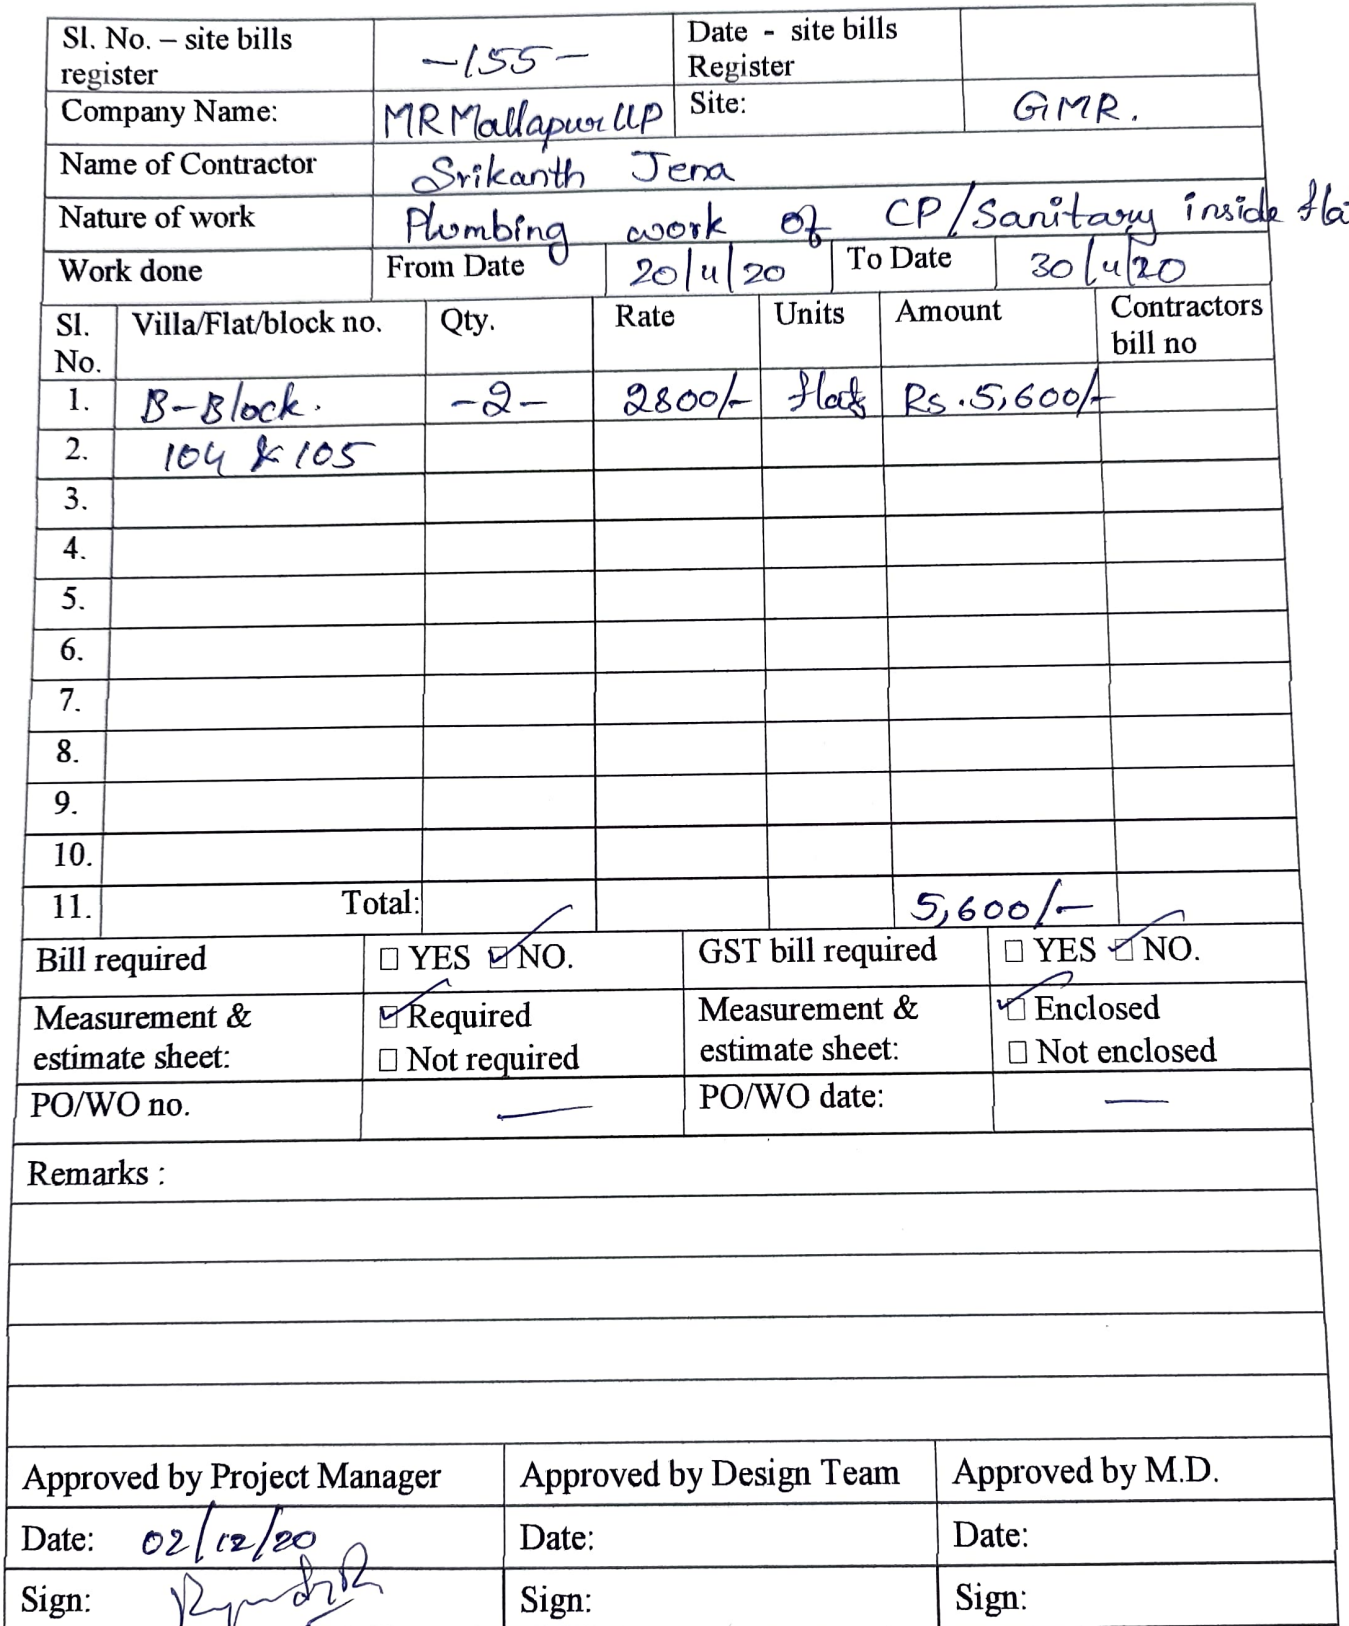 Sl. No. – site bills register -155- Date - site bills Register
Company Name: MR Mallapur LLP Site: GMR.
Name of Contractor Srikanth Jena
Nature of work Plumbing work of CP/Sanitary inside
Work done From Date 20/11/20 To Date 30/11/20
Sl. No. Villa/Flat/block no. Qty. Rate Units Amount Contractors bill no
1. B-Block. -2- 2800/- flats Rs.5,600/-
2. 104 & 105
3.
4.
5.
6.
7.
8.
9.
10.
11. Total: 5,600/-
Bill required ☐ YES ☑ NO. GST bill required ☐ YES ☑ NO.
Measurement & estimate sheet: ☑ Required ☐ Not required Measurement & estimate sheet: ☑ Enclosed ☐ Not enclosed
PO/WO no. — PO/WO date: —
Remarks :
Approved by Project Manager Approved by Design Team Approved by M.D.
Date: 02/12/20 Date: Date:
Sign: Sign: Sign: